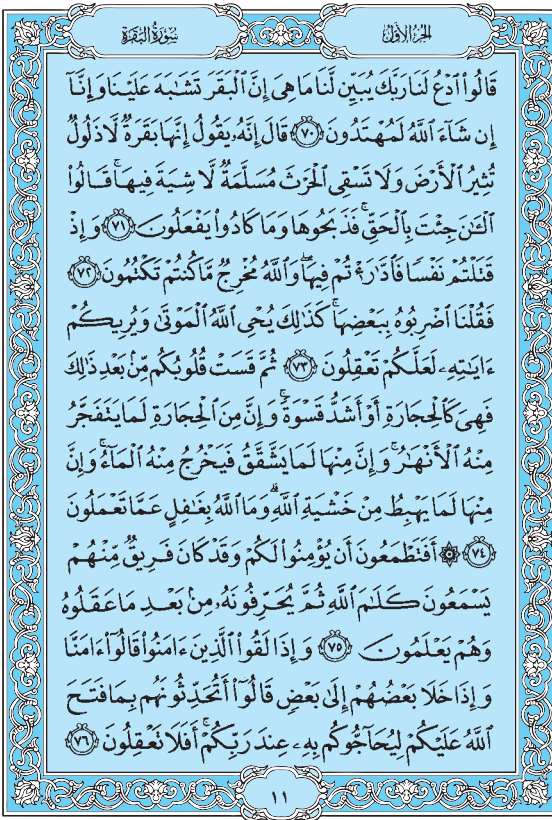 الجزء الأول
سورة البقرة
قَالُواْ ٱدۡعُ لَنَا رَبَّكَ يُبَيِّن لَّنَا مَا هِيَ إِنَّ ٱلۡبَقَرَ تَشَٰبَهَ عَلَيۡنَا وَإِنَّآ
إِن شَآءَ ٱللَّهُ لَمُهۡتَدُونَ ٧٠ قَالَ إِنَّهُۥ يَقُولُ إِنَّهَا بَقَرَةٞ لَّا ذَلُولٞ
تُثِيرُ ٱلۡأَرۡضَ وَلَا تَسۡقِي ٱلۡحَرۡثَ مُسَلَّمَةٞ لَّا شِيَةَ فِيهَاۚ قَالُواْ
ٱلۡـَٰٔنَ جِئۡتَ بِٱلۡحَقِّۚ فَذَبَحُوهَا وَمَا كَادُواْ يَفۡعَلُونَ ٧١ وَإِذۡ
قَتَلۡتُمۡ نَفۡسٗا فَٱدَّٰرَٰٔتُمۡ فِيهَاۖ وَٱللَّهُ مُخۡرِجٞ مَّا كُنتُمۡ تَكۡتُمُونَ ٧٢
فَقُلۡنَا ٱضۡرِبُوهُ بِبَعۡضِهَاۚ كَذَٰلِكَ يُحۡيِ ٱللَّهُ ٱلۡمَوۡتَىٰ وَيُرِيكُمۡ
ءَايَٰتِهِۦ لَعَلَّكُمۡ تَعۡقِلُونَ ٧٣ ثُمَّ قَسَتۡ قُلُوبُكُم مِّنۢ بَعۡدِ ذَٰلِكَ
فَهِيَ كَٱلۡحِجَارَةِ أَوۡ أَشَدُّ قَسۡوَةٗۚ وَإِنَّ مِنَ ٱلۡحِجَارَةِ لَمَا يَتَفَجَّرُ
مِنۡهُ ٱلۡأَنۡهَٰرُۚ وَإِنَّ مِنۡهَا لَمَا يَشَّقَّقُ فَيَخۡرُجُ مِنۡهُ ٱلۡمَآءُۚ وَإِنَّ
مِنۡهَا لَمَا يَهۡبِطُ مِنۡ خَشۡيَةِ ٱللَّهِۗ وَمَا ٱللَّهُ بِغَٰفِلٍ عَمَّا تَعۡمَلُونَ
٧٤ ۞ أَفَتَطۡمَعُونَ أَن يُؤۡمِنُواْ لَكُمۡ وَقَدۡ كَانَ فَرِيقٞ مِّنۡهُمۡ
يَسۡمَعُونَ كَلَٰمَ ٱللَّهِ ثُمَّ يُحَرِّفُونَهُۥ مِنۢ بَعۡدِ مَا عَقَلُوهُ
وَهُمۡ يَعۡلَمُونَ ٧٥ وَإِذَا لَقُواْ ٱلَّذِينَ ءَامَنُواْ قَالُوٓاْ ءَامَنَّا
وَإِذَا خَلَا بَعۡضُهُمۡ إِلَىٰ بَعۡضٖ قَالُوٓاْ أَتُحَدِّثُونَهُم بِمَا فَتَحَ
ٱللَّهُ عَلَيۡكُمۡ لِيُحَآجُّوكُم بِهِۦ عِندَ رَبِّكُمۡۚ أَفَلَا تَعۡقِلُونَ ٧٦
١١